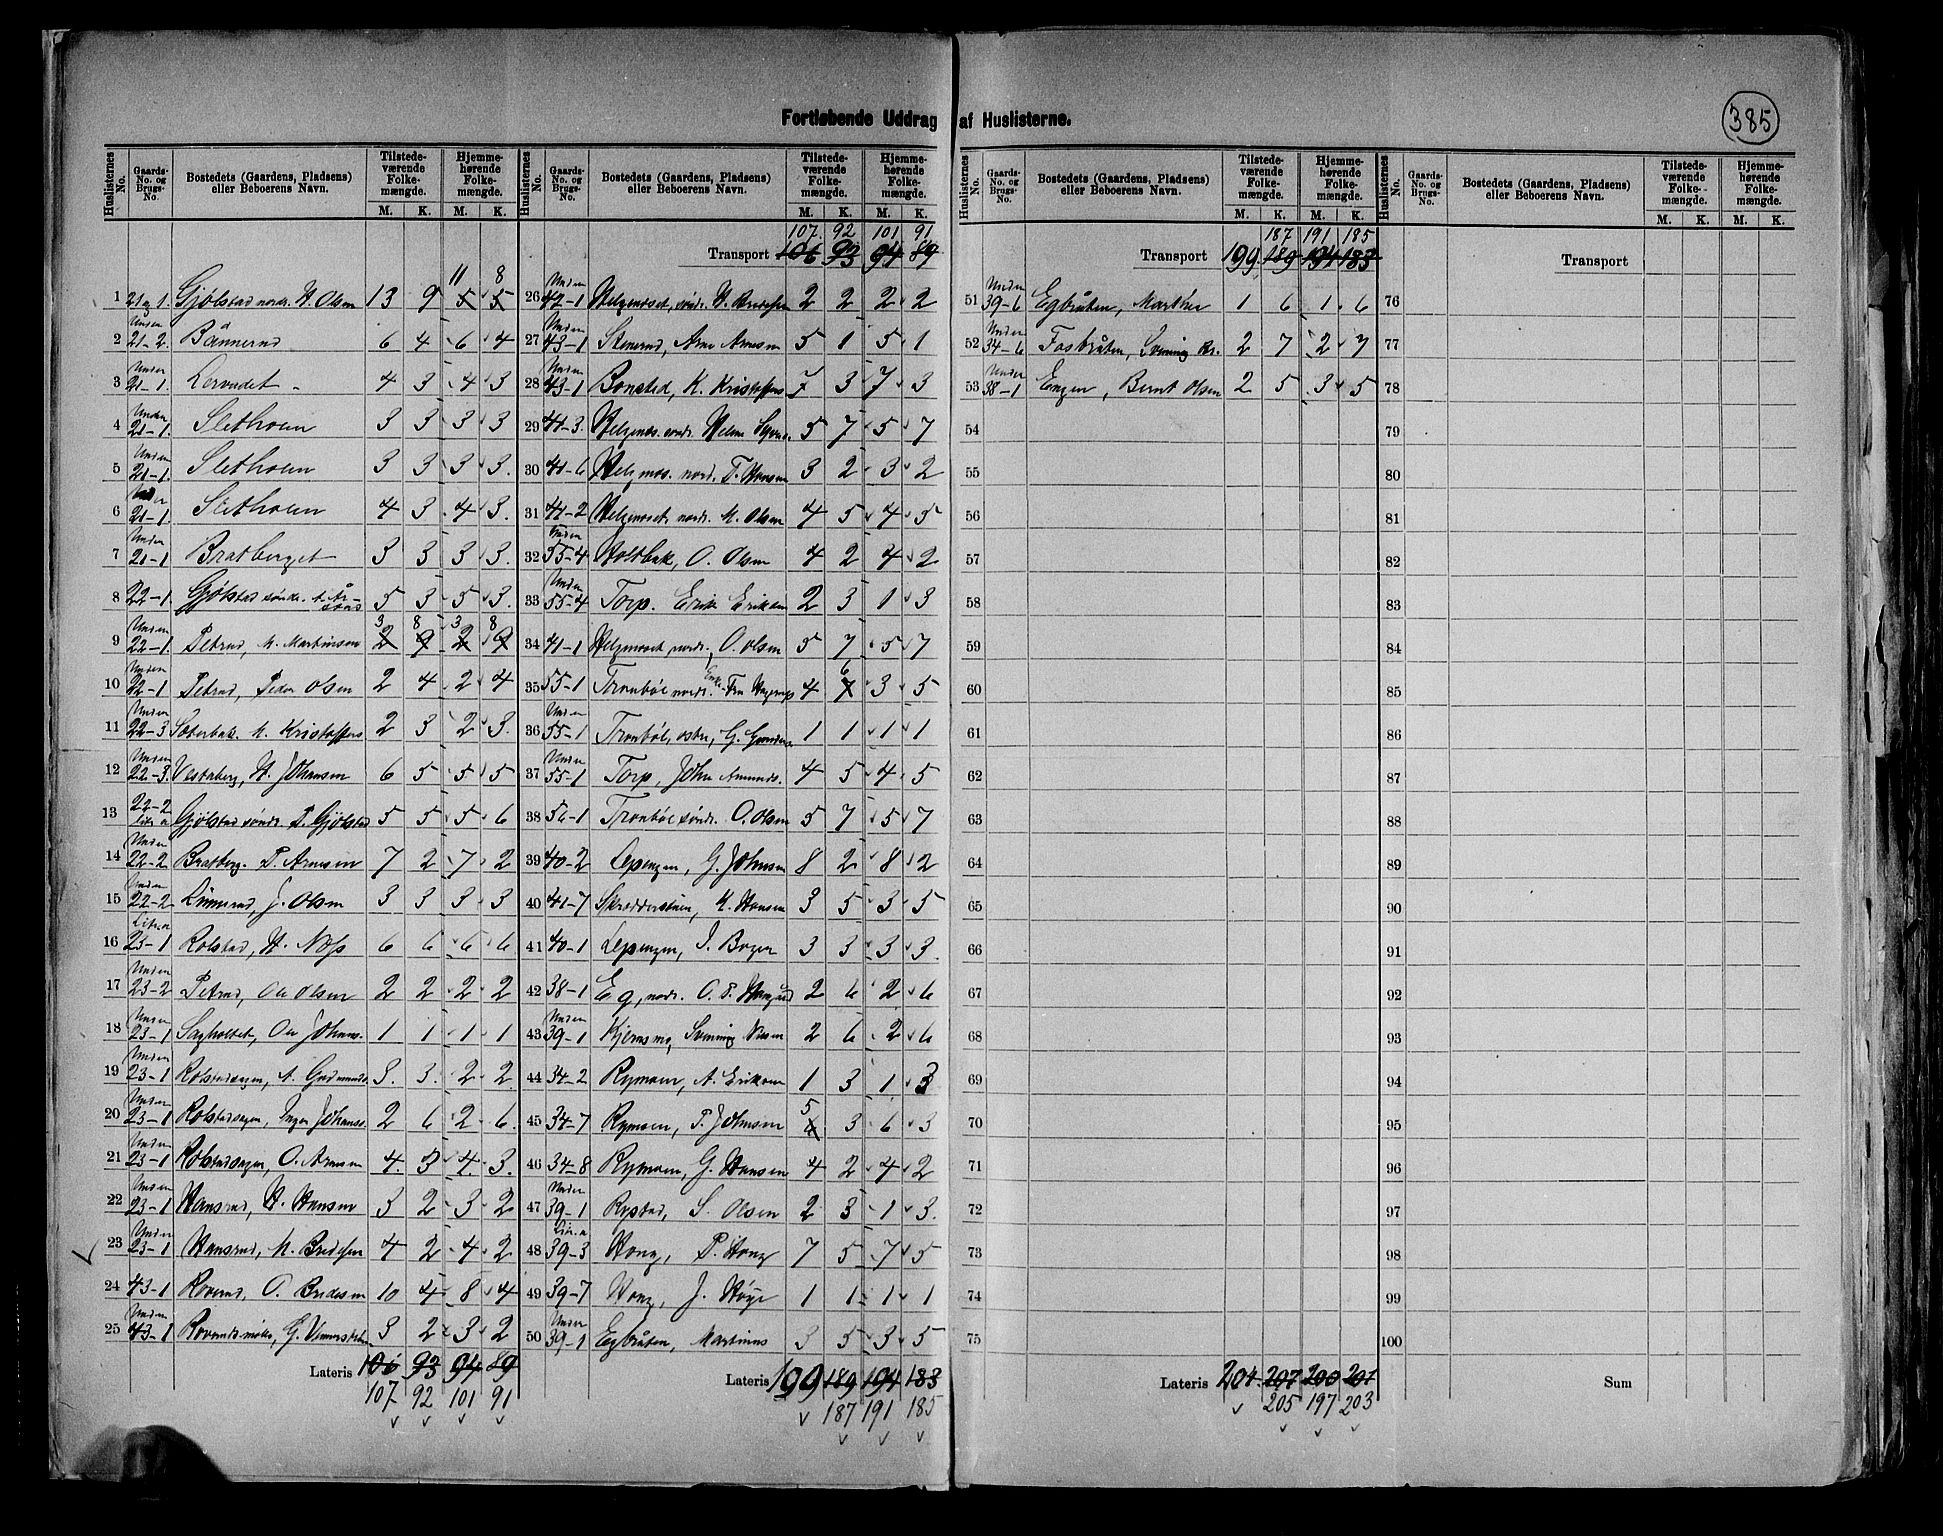 Fortløbende Uddrag af Huslisterne.
385
Huslisternes No. Gaards-No. og Brugs-No. Bostedets (Gaardens, Pladsens) eller Beboerens Navn. Tilstedeværende Folkemængde. Hjemmehørende Folkemængde.
M. K. M. K.
11 8
1 21-1. Gjølstad nordr. H. Olsen 13 9 5 5
2 Under 21-2. Bånnerud 6 4 6 4
3 Under 21-1. 4 3 4 3
4 Under 21-1. Sletholen 3 3 3 3
5 Under 21-1. Sletholen 3 3 3 3.
6 Under 21-1. Sletholen 4 3 4 3.
7 Under 21-1 Bratberget 3 3 3 3
8 22-1. Gjølstad søndr. 5 3 5 3.
3 8 3 8
9 Under 22-1. Petrud, M. Martinsen 2 9 2 9
10 Under 22-1 Petrud, Peder Olsen 2 4 2 4
11 Under 22-3 Sæterbak. K. Kristoffers 2 3 2 3.
12 Under 22-3 Vestaberg, H. Johansen 6 5 5 5
13 22-2 Litr. a Gjølstad søndr. P. Gjølstad 5 5 5 6
14 Under 22-2 Bratberg. P. Arnesen 7 2 7 2
15 Under 22-2 Linnerud, J. Olsen 3 3 3 3
16 Litr. a 23-1 Rolstad, H. Næss 6 6 6 6
17 Under 23-2 Petrud, Ole Olsen 2 2 2 2
18 Under 23-1 Sagholtet, Ole Johans. 1 1 1 1
19 Under 23-1 Rolstadsagen, A. Gudmunds. 3. 3. 2 2.
20 Under 23-1 Rolstadsagen, Inger Johans. 2 6 2 6.
21 Under 23-1 Rolstadsagen, O. Arnesen 4. 3 4. 3.
22 Under 23-1 Hansrud, H. Hansen 3 2 3 2
23 Under 23-1 Hansrud, M. Bredesen 4 2 4 2
24 43-1 Roverud, O. Bredesen 10 4 8 4
25 Under 43-1 Roverudsmoen, G. 3 2 3 2
Lateris 106 93 94 89
107 92 101 91
Huslisternes No. Gaards-No. og Brugs-No. Bostedets (Gaardens, Pladsens) eller Beboerens Navn. Tilstedeværende Folkemængde. Hjemmehørende Folkemængde.
M. K. M. K.
107. 92 101 91
Transport 106 93 94 89
26 Under 42-1 Helgenæset, søndr. H. Bredesen 2 2 2 2
27 Under 43-1 Stenerud, Arne Arnesen 5 1 5 1
28 Under 43-1 Bonsted, K. Kristoffers 7 3 7 3
29 41-3 Helgenæs. søndr. 5 7 5 7
30 41-6 Helgenæs. nordr. T. Hansen 3 2 3 2
31 41-2 Helgenæset nordr. M. Olsen 4 5 4 5
32 Under 55-4 Holtbak, O. Olsen 4 2 4 2
33 Under 55-4 Torp. Erik Eriksen 2 3 1 3
34 41-1 Helgenæset nordr., O. Olsen 5 7 5 7
6
35 55-1 Tronbøl nordr. Enke-Fru 4 7 3 5
36 Under 55-1 Tronbøl, østre, G. 1 1 1 1
37 Under 55-1 Torp, John Amunds. 4 5 4 5
38 56-1 Tronbøl søndr. O. Olsen 5 7 5 7
39 40-2 Opengen, G. Johnsen 8 2 8 2
40 41-7 Skrædderstuen, K. Hansen 3 5 3 5
41 40-1 Lepengen, J. Boger 3 3 3 3.
42 38-1 Eg, nordr. O. P. 2 6 2 6
43 Under 39-1 Kjernsmo, Svenning Nilsen 2 6 2 6
44 34-2 Rymoen, A. Eriksen 1 3 1 3
5
45 34-7 Rymoen, P. Johnsen 6 3 6 3
46 34-8 Rymoen, G. Hansen 4 2 4 2
47 Under 39-1 Rystad, S. Olsen 2 3 1 3.
48 Litr. a 39-3 Hong, P. Hong 7 5 7 5
49 39-7 Hong, J. Høye 1 1 1 1
50 Under 39-1 Egbråten Martinus 3 5 3 5
Lateris 199 189 194 183
187 191 185
Huslisternes No. Gaards-No. og Brugs-No. Bostedets (Gaardens, Pladsens) eller Beboerens Navn. Tilstedeværende Folkemængde. Hjemmehørende Folkemængde.
M. K. M. K.
187 191 185
Transport 199. 189 194 183
51 Under 39-6 Egbråten, Marthe 1 6 1 6
52 Under 34-6 Fosbråten, Svenning 2 7 2 7
53 Under 38-1 Engen, Bernt Olsen 2 5 3 5
54
55
56
57
58
59
60
61
62
63
64
65
66
67
68
69
70
71
72
73
74
75
Lateris 204. 207 200 201
205 197 203
Huslisternes No. Gaards-No. og Brugs-No. Bostedets (Gaardens, Pladsens) eller Beboerens Navn. Tilstedeværende Folkemængde. Hjemmehørende Folkemængde.
M. K. M. K.
Transport
76
77
78
79
80
81
82
83
84
85
86
87
88
89
90
91
92
93
94
95
96
97
98
99
100
Sum